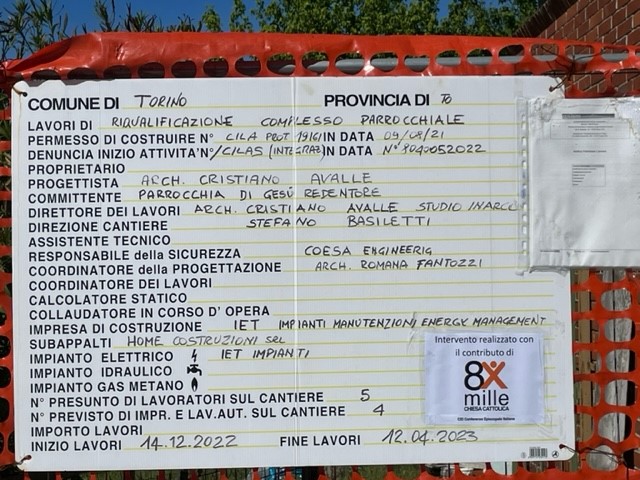 COMUNE DI TORINO PROVINCIA DI TO
LAVORI DI RIQUALIFICAZIONE COMPLESSO PARROCCHIALE
PERMESSO DI COSTRUIRE N° CILA PROT 19161 IN DATA 09/08/21
DENUNCIA INIZIO ATTIVITA' N° /CILAS (INTEGRAZ) IN DATA N° 8040052022
PROPRIETARIO
PROGETTISTA ARCH. CRISTIANO AVALLE
COMMITTENTE PARROCCHIA DI GESÙ REDENTORE
DIRETTORE DEI LAVORI ARCH. CRISTIANO AVALLE STUDIO INARCO
DIREZIONE CANTIERE STEFANO BASILETTI
ASSISTENTE TECNICO
RESPONSABILE della SICUREZZA COESA ENGINEERIG
COORDINATORE della PROGETTAZIONE ARCH. ROMANA FANTOZZI
COORDINATORE DEI LAVORI
CALCOLATORE STATICO
COLLAUDATORE IN CORSO D' OPERA
IMPRESA DI COSTRUZIONE IET IMPIANTI MANUTENZIONI ENERGY MANAGEMENT
SUBAPPALTI HOME COSTRUZIONI SRL
IMPIANTO ELETTRICO IET IMPIANTI
IMPIANTO IDRAULICO
IMPIANTO GAS METANO
N° PRESUNTO DI LAVORATORI SUL CANTIERE 5
N° PREVISTO DI IMPR. E LAV.AUT. SUL CANTIERE 4
IMPORTO LAVORI
INIZIO LAVORI 14.12.2022 FINE LAVORI 12.04.2023
Intervento realizzato con
il contributo di
8X
mille
CHIESA CATTOLICA
CEI Conferenza Episcopale Italiana